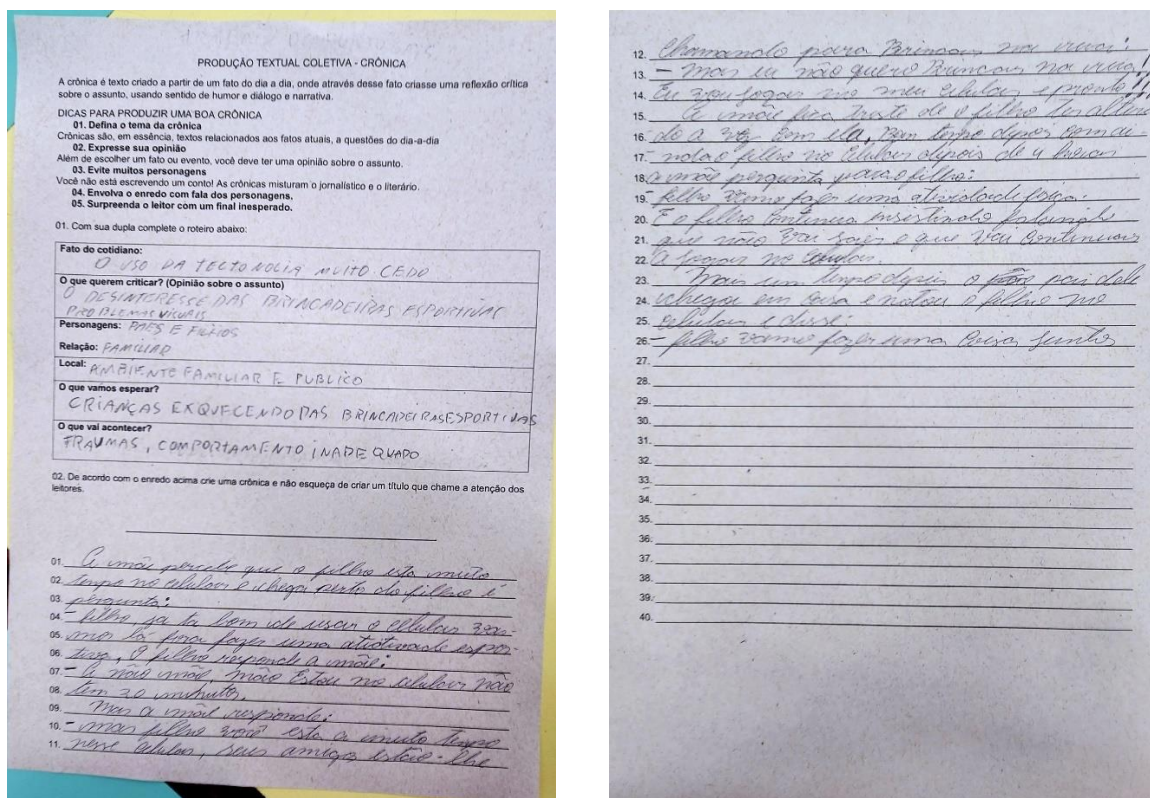 PRODUÇÃO TEXTUAL COLETIVA - CRÔNICA
A crônica é texto criado a partir de um fato do dia a dia, onde através desse fato criasse uma reflexão crítica
sobre o assunto, usando sentido de humor e diálogo e narrativa.
DICAS PARA PRODUZIR UMA BOA CRÔNICA
01. Defina o tema da crônica
Crônicas são, em essência, textos relacionados aos fatos atuais, a questões do dia-a-dia
02. Expresse sua opinião
Além de escolher um fato ou evento, você deve ter uma opinião sobre o assunto.
03. Evite muitos personagens
Você não está escrevendo um conto! As crônicas misturam o jornalístico e o literário.
04. Envolva o enredo com fala dos personagens.
05. Surpreenda o leitor com um final inesperado.
01. Com sua dupla complete o roteiro abaixo:
Fato do cotidiano:
O USO DA TECTONOLIA MUITO CEDO
O que querem criticar? (Opinião sobre o assunto)
O DESINTERESSE DAS BRINCADEIRAS ESPORTIVAS
PROBLEMAS VISUAIS
Personagens: PAES E FILHOS
Relação: FAMILIAR
Local: AMBIENTE FAMILIAR E PUBLICO
O que vamos esperar?
CRIANÇAS EXQUECENDO DAS BRINCADEIRAS ESPORTIVAS
O que vai acontecer?
TRAUMAS, COMPORTAMENTO INADEQUADO
02. De acordo com o enredo acima crie uma crônica e não esqueça de criar um título que chame a atenção dos
leitores.
01. A mãe percebe que o filho esta muito
02. tempo no celular e chega perto do filho e
03. pergunta:
04. - filho, ja ta bom de usar o celular va-
05. mos lá fora fazer uma atividade espor-
06. tiva, O filho responde a mãe:
07. - A não mãe, mão Estou no celular não
08. tem 20 minutos.
09. Mas a mãe responde:
10. - mas filho você esta a muito tempo
11. nesse celular, seus amigos estão lhe
12. Chamando para Brincar na rua:
13. - Mas eu não quero Brincar na rua!
14. Eu vou jogar no meu celular e pronto!!!
15. A mãe fica triste de o filho ter altera-
16. do a voz com ela, Bem tempo depois com ai-
17. nda o filho no celular depois de 4 horas
18. a mãe pergunta para o filho:
19. - filho vamo fazer uma atividade fisica:
20. E o filho continua insistindo falando
21. que não vai sair e que vai continuar
22. a jogar no celular.
23. Mais um tempo depois o pai dele
24. chegou em casa e notou o filho no
25. celular e disse:
26. - filho vamo fazer uma Coisa Juntos
27.
28.
29.
30.
31.
32.
33.
34.
35.
36.
37.
38.
39.
40.